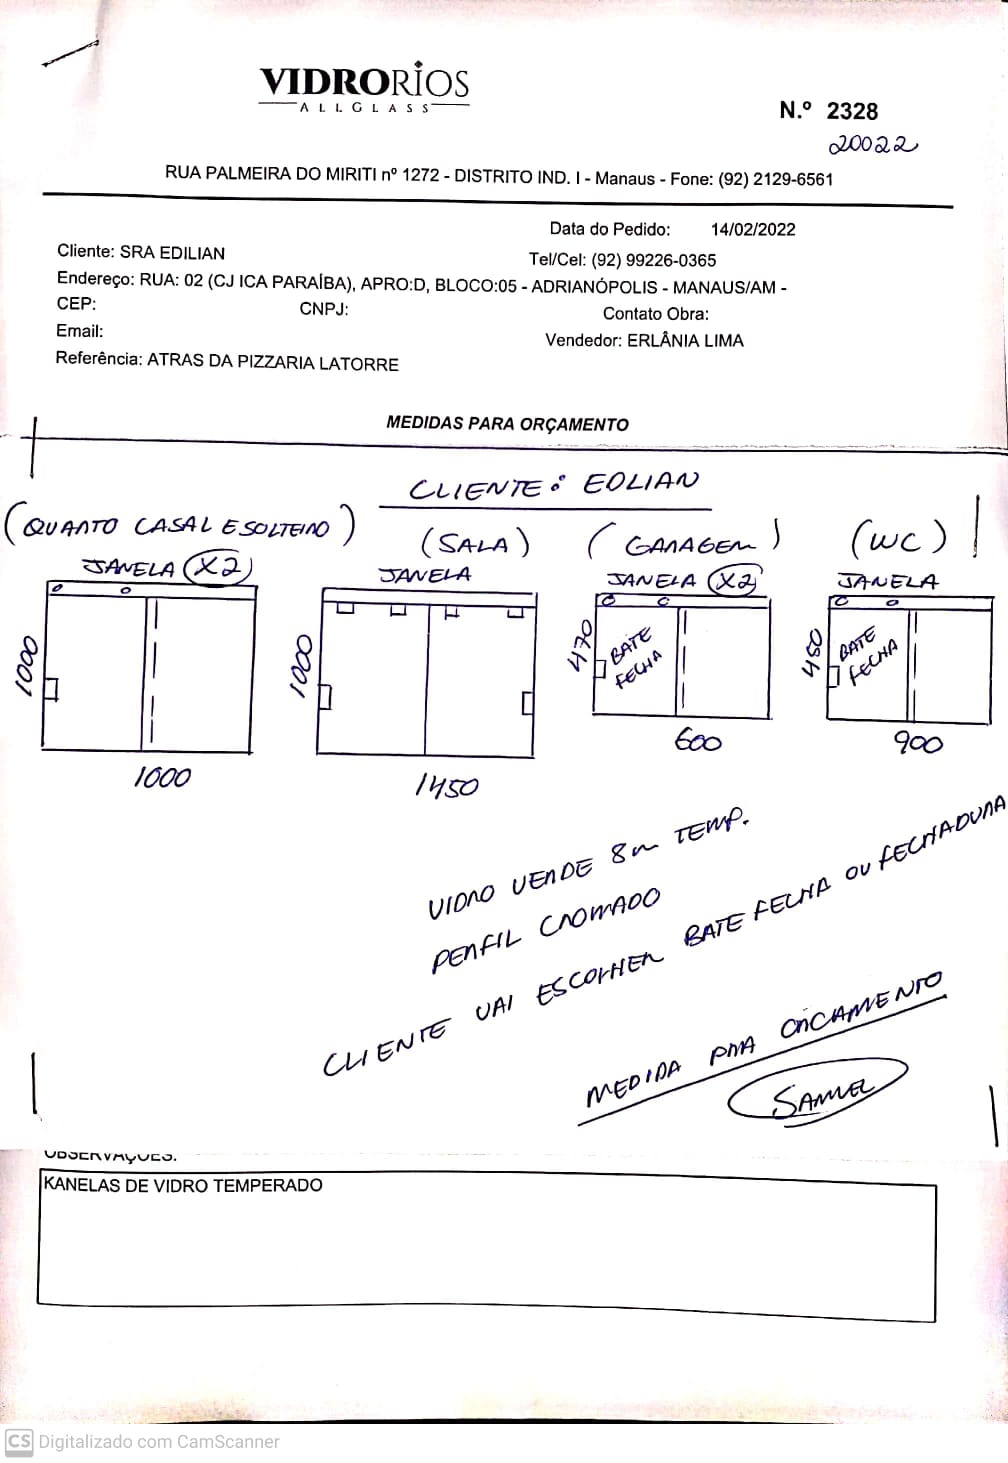 VIDRORIOS
ALLGLASS
N.º 2328
20022
RUA PALMEIRA DO MIRITI nº 1272 - DISTRITO IND. I - Manaus - Fone: (92) 2129-6561
Data do Pedido: 14/02/2022
Cliente: SRA EDILIAN
Tel/Cel: (92) 99226-0365
Endereço: RUA: 02 (CJ ICA PARAÍBA), APRO:D, BLOCO:05 - ADRIANÓPOLIS - MANAUS/AM -
CEP: CNPJ: Contato Obra:
Email:
Vendedor: ERLÂNIA LIMA
Referência: ATRAS DA PIZZARIA LATORRE
MEDIDAS PARA ORÇAMENTO
CLIENTE: EDLIAN
(QUARTO CASAL E SOLTEIRO) (SALA) (GARAGEM) (WC)
JANELA (X2) JANELA JANELA (X2) JANELA
1000 1000 470 BATE FECHA 450 BATE FECHA
1000 1450 600 900
VIDRO VERDE 8m TEMP.
PERFIL CROMADO
CLIENTE VAI ESCOLHER BATE FECHA OU FECHADURA
MEDIDA PRA ORCAMENTO
SAMUEL
OBSERVAÇÕES:
KANELAS DE VIDRO TEMPERADO
CS Digitalizado com CamScanner